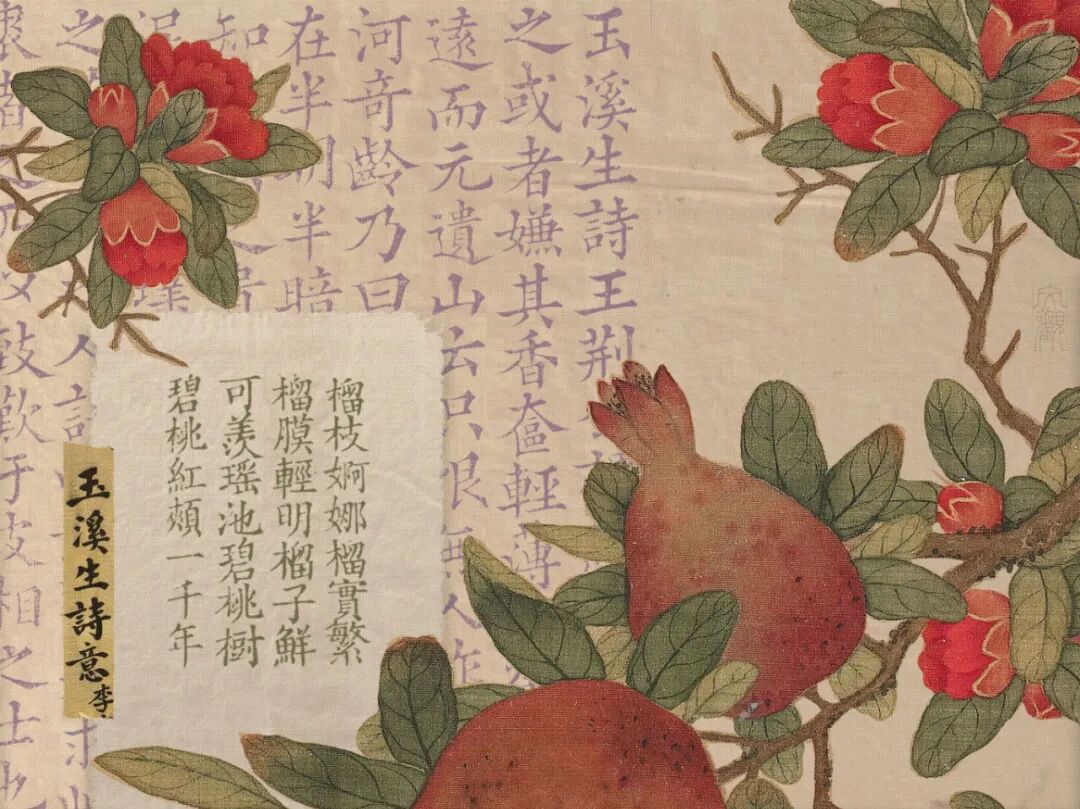 玉溪生詩王荆
之或者嫌其香奩輕薄
遠而元遺山云只恨無人作
河奇齡乃曰
在半明半暗
知
瑾
之
歎于皮相之士
榴枝婀娜榴實繁
榴膜輕明榴子鮮
可羨瑶池碧桃樹
碧桃紅頰一千年
玉溪生詩意 李